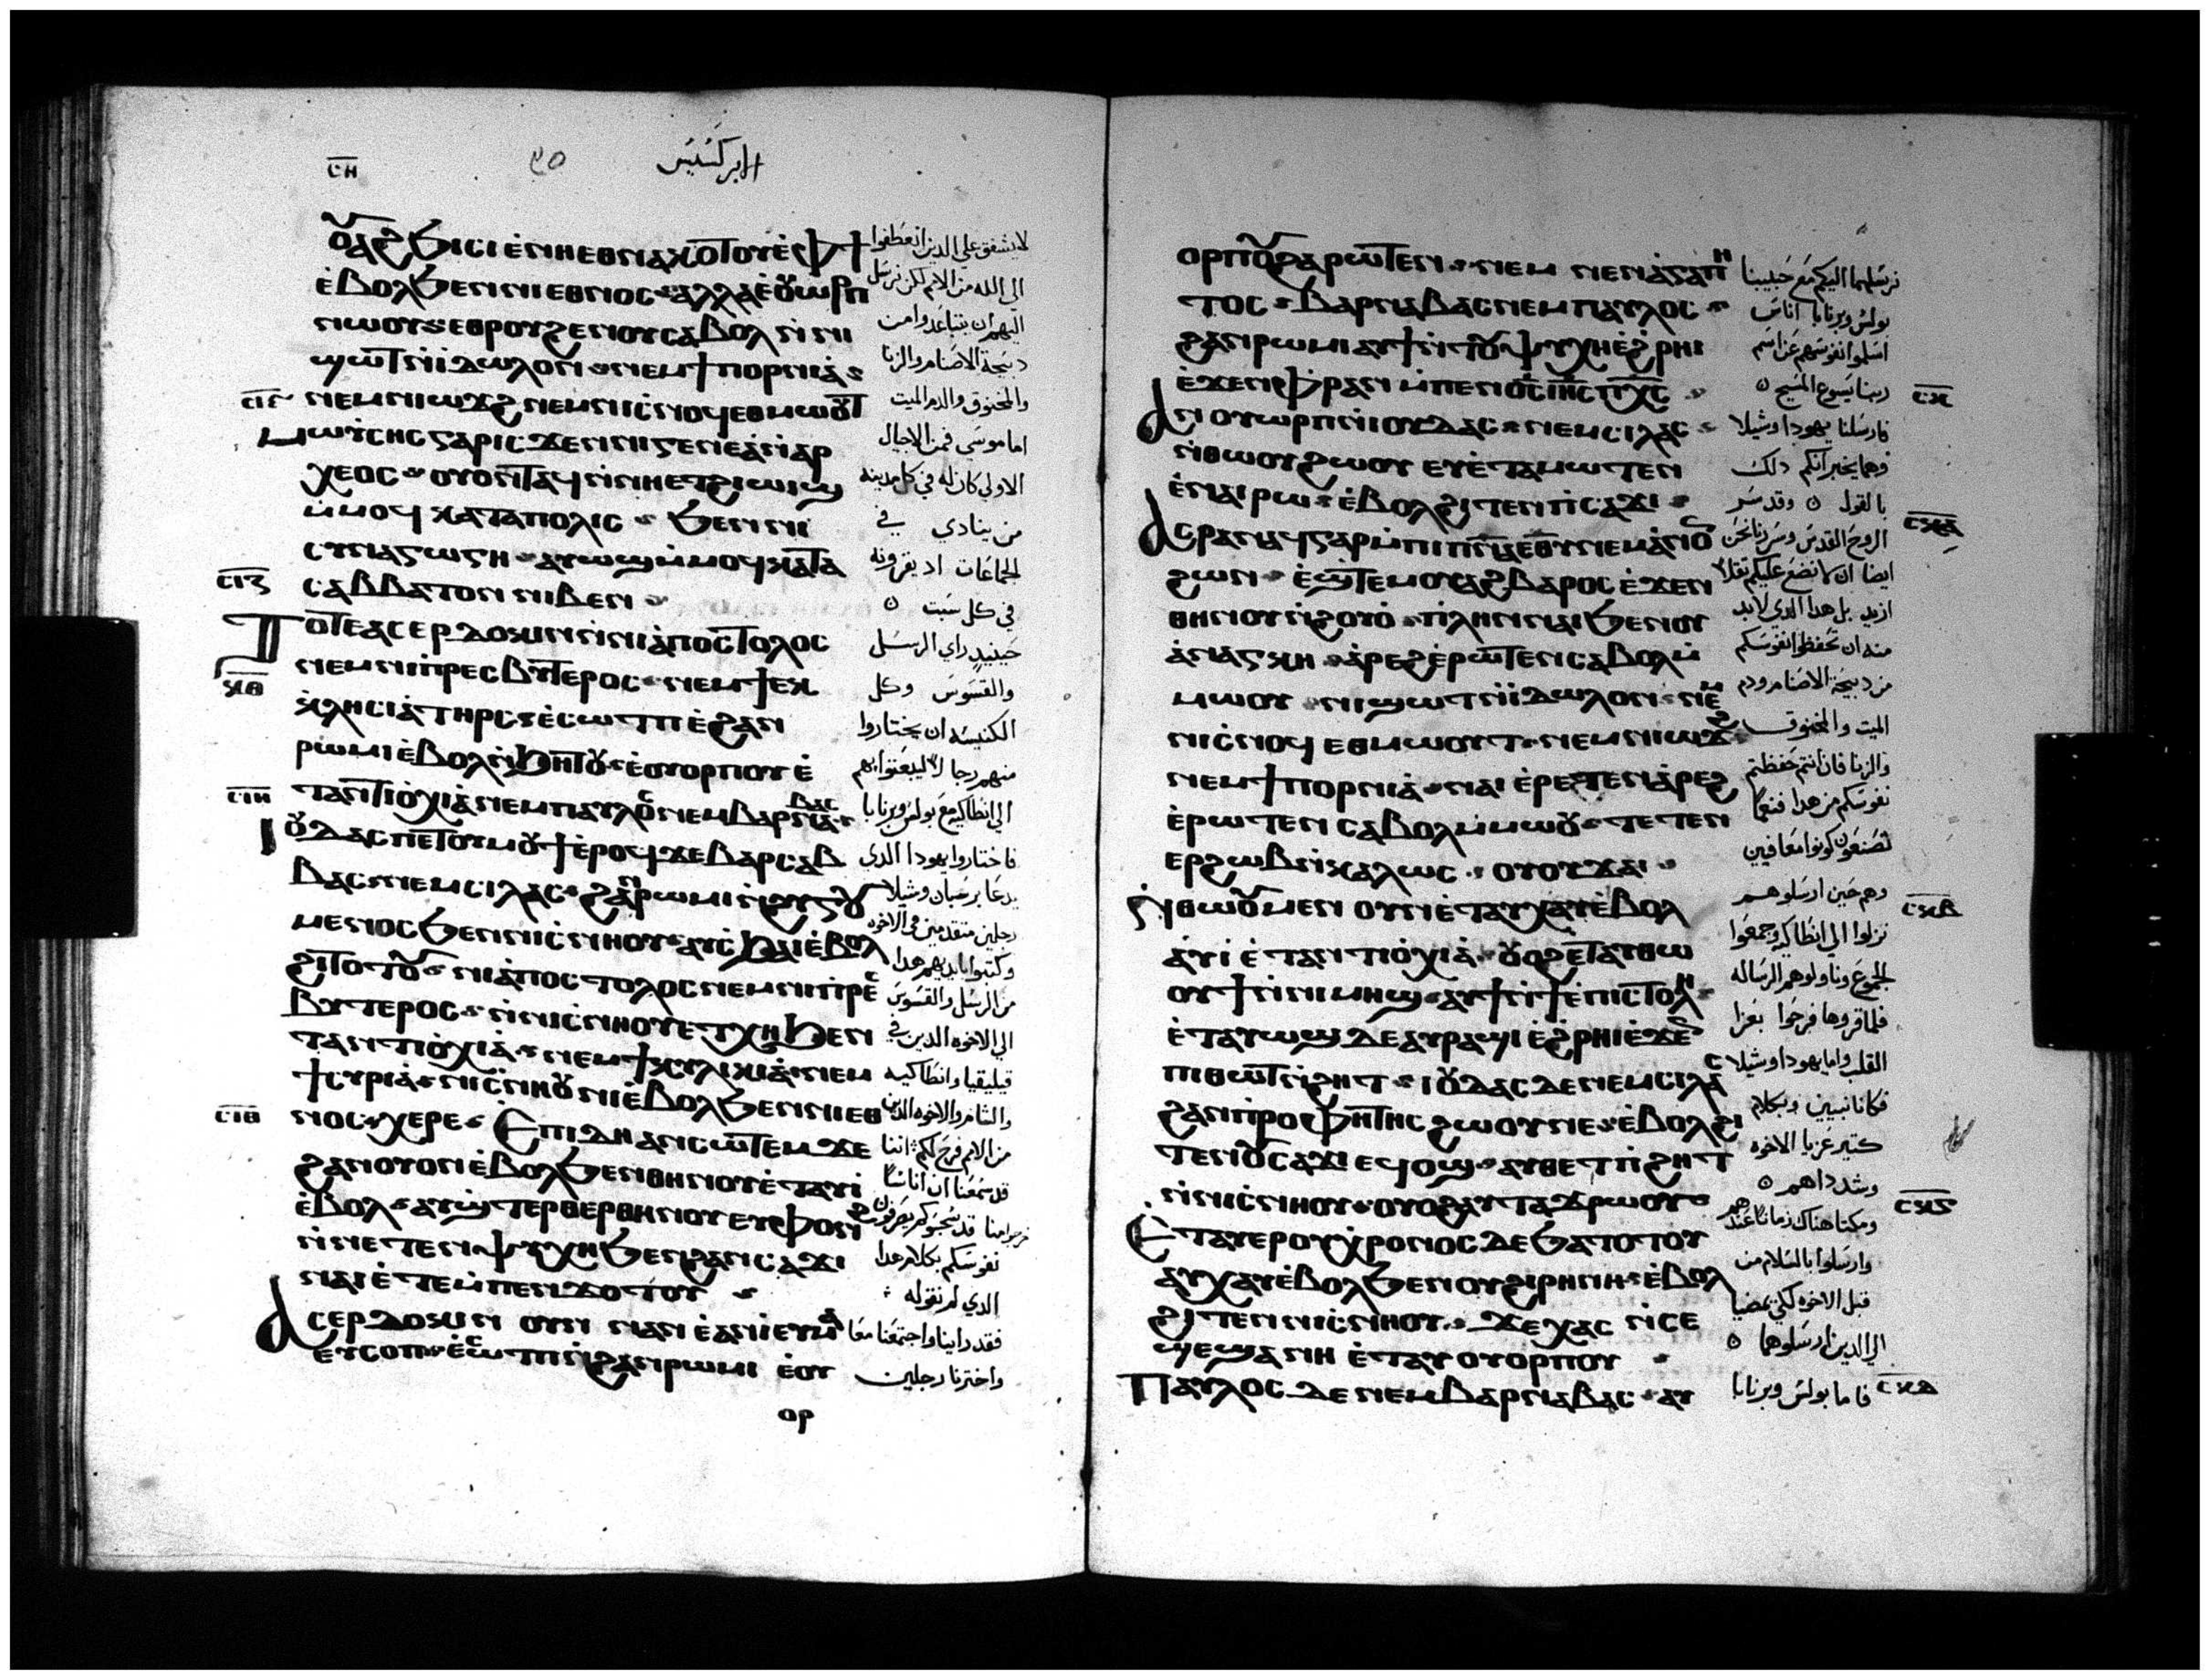 ⲥⲏ
الابركسيس
ⲟⲩⲁϩϧⲓⲥⲓ ⲉ̀ⲛⲏⲉⲑⲛⲁⲕⲟⲧⲟⲩ ⲉ̀ⲫϯ
ⲉ̀ⲃⲟⲗϧⲉⲛⲛⲓⲉⲑⲛⲟⲥ ⲁⲗⲗⲁ ⲉ̀ⲟⲩⲱⲣⲡ
ⲛⲱⲟⲩ ⲉⲑⲣⲟⲩϩⲉⲛⲟⲩ ⲥⲁⲃⲟⲗ ⲛ̀ⲛⲓ
ϣⲱⲧ ⲛ̀ⲓⲇⲱⲗⲟⲛ ⲛⲉⲙϯⲡⲟⲣⲛⲓⲁ̀
ⲛⲉⲙⲛⲓⲱϫϩ ⲛⲉⲙⲛⲓⲥ̀ⲛⲟϥ ⲉⲑⲙⲱⲟⲩⲧ
ⲙⲱⲩⲥⲏⲥ ⲅⲁⲣ ⲓⲥϫⲉⲛ ⲛⲓⲅⲉⲛⲉⲁ̀ ⲛ̀ⲁⲣ
ⲭⲉⲟⲥ ⲟⲩⲟⲛⲧⲁϥ ⲛ̀ⲛⲏⲉⲧϩⲓⲱⲓϣ
ⲙ̀ⲙⲟϥ ⲕⲁⲧⲁⲡⲟⲗⲓⲥ ϧⲉⲛ ⲛⲓ
ⲥⲩⲛⲁⲅⲱⲅⲏ ⲁⲩⲱϣ ⲙ̀ⲙⲟϥ ⲕⲁⲧⲁ
ⲥⲁⲃⲃⲁⲧⲟⲛ ⲛⲓⲃⲉⲛ
ⲧⲟⲧⲉ ⲁⲥⲉⲣⲇⲟⲕⲓⲛ ⲛ̀ⲛⲓⲁ̀ⲡⲟⲥⲧⲟⲗⲟⲥ
ⲛⲉⲙⲛⲓⲡ̀ⲣⲉⲥⲃⲩⲧⲉⲣⲟⲥ ⲛⲉⲙϯⲉⲕ
ⲕ̀ⲗⲏⲥⲓⲁ̀ ⲧⲏⲣⲥ ⲉ̀ⲥⲱⲧⲡ ⲉ̀ϩⲁⲛ
ⲣⲱⲙⲓ ⲉ̀ⲃⲟⲗ ⲛ̀ϧⲏⲧⲟⲩ ⲉ̀ⲟⲩⲟⲣⲡⲟⲩ ⲉ̀
ⲧⲁⲛⲧⲓⲟⲭⲓⲁ̀ ⲛⲉⲙⲡⲁⲩⲗⲟⲥ ⲛⲉⲙⲃⲁⲣⲛⲁⲃⲁⲥ
ⲓⲟⲩⲇⲁⲥ ⲡⲉⲧⲟⲩⲙⲟⲩϯ ⲉ̀ⲣⲟϥ ϫⲉ ⲃⲁⲣⲥⲁⲃ
ⲃⲁⲥ ⲛⲉⲙⲥⲓⲗⲁⲥ ϩⲁⲛⲣⲱⲙⲓ ⲛ̀ϩⲩⲅⲟⲩ
ⲙⲉⲛⲟⲥ ϧⲉⲛ ⲛⲓⲥ̀ⲛⲏⲟⲩ ⲁⲩⲥ̀ϧⲁⲓ ⲉ̀ⲃⲟⲗ
ϩⲓⲧⲟⲧⲟⲩ ⲛⲓⲁ̀ⲡⲟⲥⲧⲟⲗⲟⲥ ⲛⲉⲙⲛⲓⲡ̀ⲣⲉⲥ
ⲃⲩⲧⲉⲣⲟⲥ ⲛ̀ⲛⲓⲥ̀ⲛⲏⲟⲩ ⲉⲧⲭⲏ ϧⲉⲛ
ⲧⲁⲛⲧⲓⲟ̀ⲭⲓⲁ̀ ⲛⲉⲙϯⲕⲩⲗⲓⲕⲓⲁ̀ ⲛⲉⲙ
ϯⲥⲩⲣⲓⲁ̀ ⲛⲓⲥ̀ⲛⲏⲟⲩ ⲛⲓⲉ̀ⲃⲟⲗϧⲉⲛⲛⲓⲉⲑ
ⲛⲟⲥ ⲭⲉⲣⲉ ⲉⲡⲓⲇⲏ ⲁⲛⲥⲱⲧⲉⲙ ϫⲉ
ϩⲁⲛⲟⲩⲟⲛ ⲉ̀ⲃⲟⲗϧⲉⲛⲑⲏⲛⲟⲩ ⲉ̀ⲧⲁⲩⲓ̀
ⲉ̀ⲃⲟⲗ ⲁⲩϣ̀ⲧⲉⲣⲑⲉⲣⲑⲏⲛⲟⲩ ⲉⲩⲫⲟⲛϩ
ⲛ̀ⲛⲉⲧⲉⲛⲯⲩⲭⲏ ϧⲉⲛϩⲁⲛⲥⲁϫⲓ
ⲛⲁⲓ ⲉ̀ⲧⲉⲙ̀ⲡⲉⲛϫⲟⲧⲟⲩ
ⲁⲥⲉⲣⲇⲟⲕⲓⲛ ⲟⲩⲛ ⲛⲁⲛ ⲉ̀ⲁⲛⲓ̀ ⲉⲩⲙⲁ
ⲉⲩⲥⲟⲡ ⲉ̀ⲥⲱⲧⲡ ⲛ̀ϩⲁⲛⲣⲱⲙⲓ ⲉ̀ⲟⲩ
ⲟⲣ
ⲥⲓⲍ
ⲥⲓⲏ
ⲥⲓⲑ
لا يشفق على الدين انعطفوا
الي الله من الامم لكن نرسل
اليهم ان يتباعدوا من
دبيحة الاصنام والزنا
والمخنوق والدم الميت
اما موسي فمن الاجيال
الاولي كان له في كل مدينه
من ينادي في
الجماعات اد يقرونه
في كل سبت
حينيد راي الرسل
والقسوس وكل
الكنيسه ان يختاروا
منهم رجالا ليبعتوا بهم
الي انطاكيه مع بولس وبرنابا
فاختاروا يهودا الدي
يدعا برسبان وشيلا
رجلين متقدمين في الاخوه
وكتبوا بايديهم هدا
من الرسل والقسوس
الي الاخوه الدين في
قيليقيا وانطاكيه
والشام والاخوه الدين
من الامم فرح لكم اننا
قد سمعنا ان اناسا
نفوسكم بكلام هدا
الدي لم نقوله
فقد راينا واجتمعنا معا
واخترنا رجلين
ⲟⲣⲡⲟⲩ ϩⲁⲣⲱⲧⲉⲛ ⲛⲉⲙ ⲛⲉⲛⲁ̀ⲅⲁⲡⲏ
ⲧⲟⲥ ⲃⲁⲣⲛⲁⲃⲁⲥ ⲛⲉⲙⲡⲁⲩⲗⲟⲥ
ϩⲁⲛⲣⲱⲙⲓ ⲁⲩϯ ⲛ̀ⲧⲟⲩⲯⲩⲭⲏ ⲉ̀ϩ̀ⲣⲏⲓ
ⲉ̀ϫⲉⲛ ⲫ̀ⲣⲁⲛ ⲙ̀ⲡⲉⲛⲟ̅ⲥ̅ ⲓⲏ̅ⲥ̅ ⲡⲭ̅ⲥ̅
ⲁⲛⲟⲩⲱⲣⲡ ⲛ̀ⲓⲟⲩⲇⲁⲥ ⲛⲉⲙⲥⲓⲗⲁⲥ
ⲛ̀ⲑⲱⲟⲩ ϩⲱⲟⲩ ⲉⲩⲉ̀ⲧⲁⲙⲱⲧⲉⲛ
ⲉ̀ⲛⲁⲓ ⲣⲱ ⲉ̀ⲃⲟⲗϩⲓⲧⲉⲛ ⲡ̀ⲥⲁϫⲓ
ⲁⲥⲣⲁⲛⲁϥ ⲅⲁⲣ ⲙ̀ⲡⲓⲡⲛ̅ⲁ̅ ⲉⲑⲩ ⲛⲉⲙⲁⲛⲟⲛ
ϩⲱⲛ ⲉ̀ϣ̀ⲧⲉⲙⲟⲩⲁϩⲃⲁⲣⲟⲥ ⲉ̀ϫⲉⲛ
ⲑⲏⲛⲟⲩ ⲛ̀ϩⲟⲩⲟ̀ ⲡ̀ⲗⲏⲛ ⲛⲁⲓ ϧⲉⲛⲟⲩ
ⲁ̀ⲛⲁⲅⲕⲏ ⲁ̀ⲣⲉϩ ⲉ̀ⲣⲱⲧⲉⲛ ⲥⲁⲃⲟⲗ ⲙ̀
ⲙⲱⲟⲩ ⲛⲓϣⲱⲧ ⲛ̀ⲓⲇⲱⲗⲟⲛ ⲛⲉⲙ
ⲛⲓⲥ̀ⲛⲟϥ ⲉⲑⲙⲱⲟⲩⲧ ⲛⲉⲙⲛⲓⲱϫϩ
ⲛⲉⲙϯⲡⲟⲣⲛⲓⲁ̀ ⲛⲁⲓ ⲉ̀ⲣⲉⲧⲉⲛⲁ̀ⲣⲉϩ
ⲉ̀ⲣⲱⲧⲉⲛ ⲥⲁⲃⲟⲗ ⲙ̀ⲙⲱⲟⲩ ⲧⲉⲧⲉⲛ
ⲉⲣϩⲱⲃ ⲛ̀ⲕⲁⲗⲱⲥ ⲟⲩⲟⲩϫⲁⲓ
ⲛ̀ⲑⲱⲟⲩ ⲙⲉⲛ ⲟⲩⲛ ⲉ̀ⲧⲁⲩⲭⲁⲩ ⲉ̀ⲃⲟⲗ
ⲁⲩⲓ̀ ⲉ̀ⲧⲁⲛⲧⲓⲟ̀ⲭⲓⲁ̀ ⲟⲩⲟϩ ⲉ̀ⲧⲁⲩⲑⲱ
ⲟⲩϯ ⲛ̀ⲛⲓⲙⲏϣ ⲁⲩϯ ⲛ̀ϯⲉ̀ⲡⲓⲥⲧⲟⲗⲏ
ⲉ̀ⲧⲁⲩⲱϣ ⲇⲉ ⲁⲩⲣⲁϣⲓ ⲉ̀ϩ̀ⲣⲏⲓ ⲉ̀ϫⲉⲛ
ⲡⲓⲑⲱⲧ ⲛ̀ϩⲏⲧ ⲓⲟⲩⲇⲁⲥ ⲇⲉ ⲛⲉⲙ ⲥⲓⲗⲁⲥ
ϩⲁⲛⲡ̀ⲣⲟⲫⲏⲧⲏⲥ ϩⲱⲟⲩ ⲛⲉ ⲉ̀ⲃⲟⲗϩⲓ
ⲧⲉⲛⲟⲩⲥⲁϫⲓ ⲉϥⲟϣ ⲁⲩⲑⲉⲧ ⲡ̀ϩⲏⲧ
ⲛ̀ⲛⲓⲥ̀ⲛⲏⲟⲩ ⲟⲩⲟϩ ⲁⲩⲧⲁϫⲣⲱⲟⲩ
ⲉⲧⲁⲩⲉⲣⲟⲩⲭⲣⲟⲛⲟⲥ ⲇⲉ ϧⲁⲧⲟⲧⲟⲩ
ⲁⲩⲭⲁⲩ ⲉ̀ⲃⲟⲗ ϧⲉⲛⲟⲩϩⲓⲣⲏⲛⲏ ⲉ̀ⲃⲟⲗ
ϩⲓⲧⲉⲛⲛⲓⲥ̀ⲛⲏⲟⲩ ϫⲉⲭⲁⲥ ⲛ̀ⲥⲉ
ϣⲉ ϣⲁⲛⲏ ⲉ̀ⲧⲁⲩⲟⲩⲟⲣⲡⲟⲩ
ⲡⲁⲩⲗⲟⲥ ⲇⲉ ⲛⲉⲙⲃⲁⲣⲛⲁⲃⲁⲥ ⲁⲩ
نرسلهما اليكم مع حبيبينا
بولس وبرنابا اناس
اسلموا نفوسهم عن اسم
ربنا يسوع المسيح
فارسلنا يهودا وشيلا
وهما يخبرانكم دلك
بالقول وقد سر
الروح القدس وسرنا نحن
ايضا ان لا نضع عليكم تقلا
ازيد بل هدا الدي لا بد
منه ان تحفظوا نفوسكم
من دبيحة الاصنام ودم
الميت والمخنوق
والزنا فان انتم حفظتم
نفوسكم من هدا فنعما
تصنعون كونوا معافيين
وهم حين ارسلوهم
نزلوا الي انطاكيه وجمعوا
الجموع وناولوهم الرساله
فلما قروها فرحوا بعزا
القلب واما يهودا وشيلا
فكانا نبيين وبكلام
كتير عزيا الاخوه
وشدداهم
ومكتا هناك زمانا عندهم
وارسلوا بالسلام من
قبل الاخوه لكي يمضيا
الي الدين ارسلوهما
فاما بولس وبرنابا
ⲥⲕ
ⲥⲕⲁ
ⲥⲕⲃ
ⲥⲕⲇ